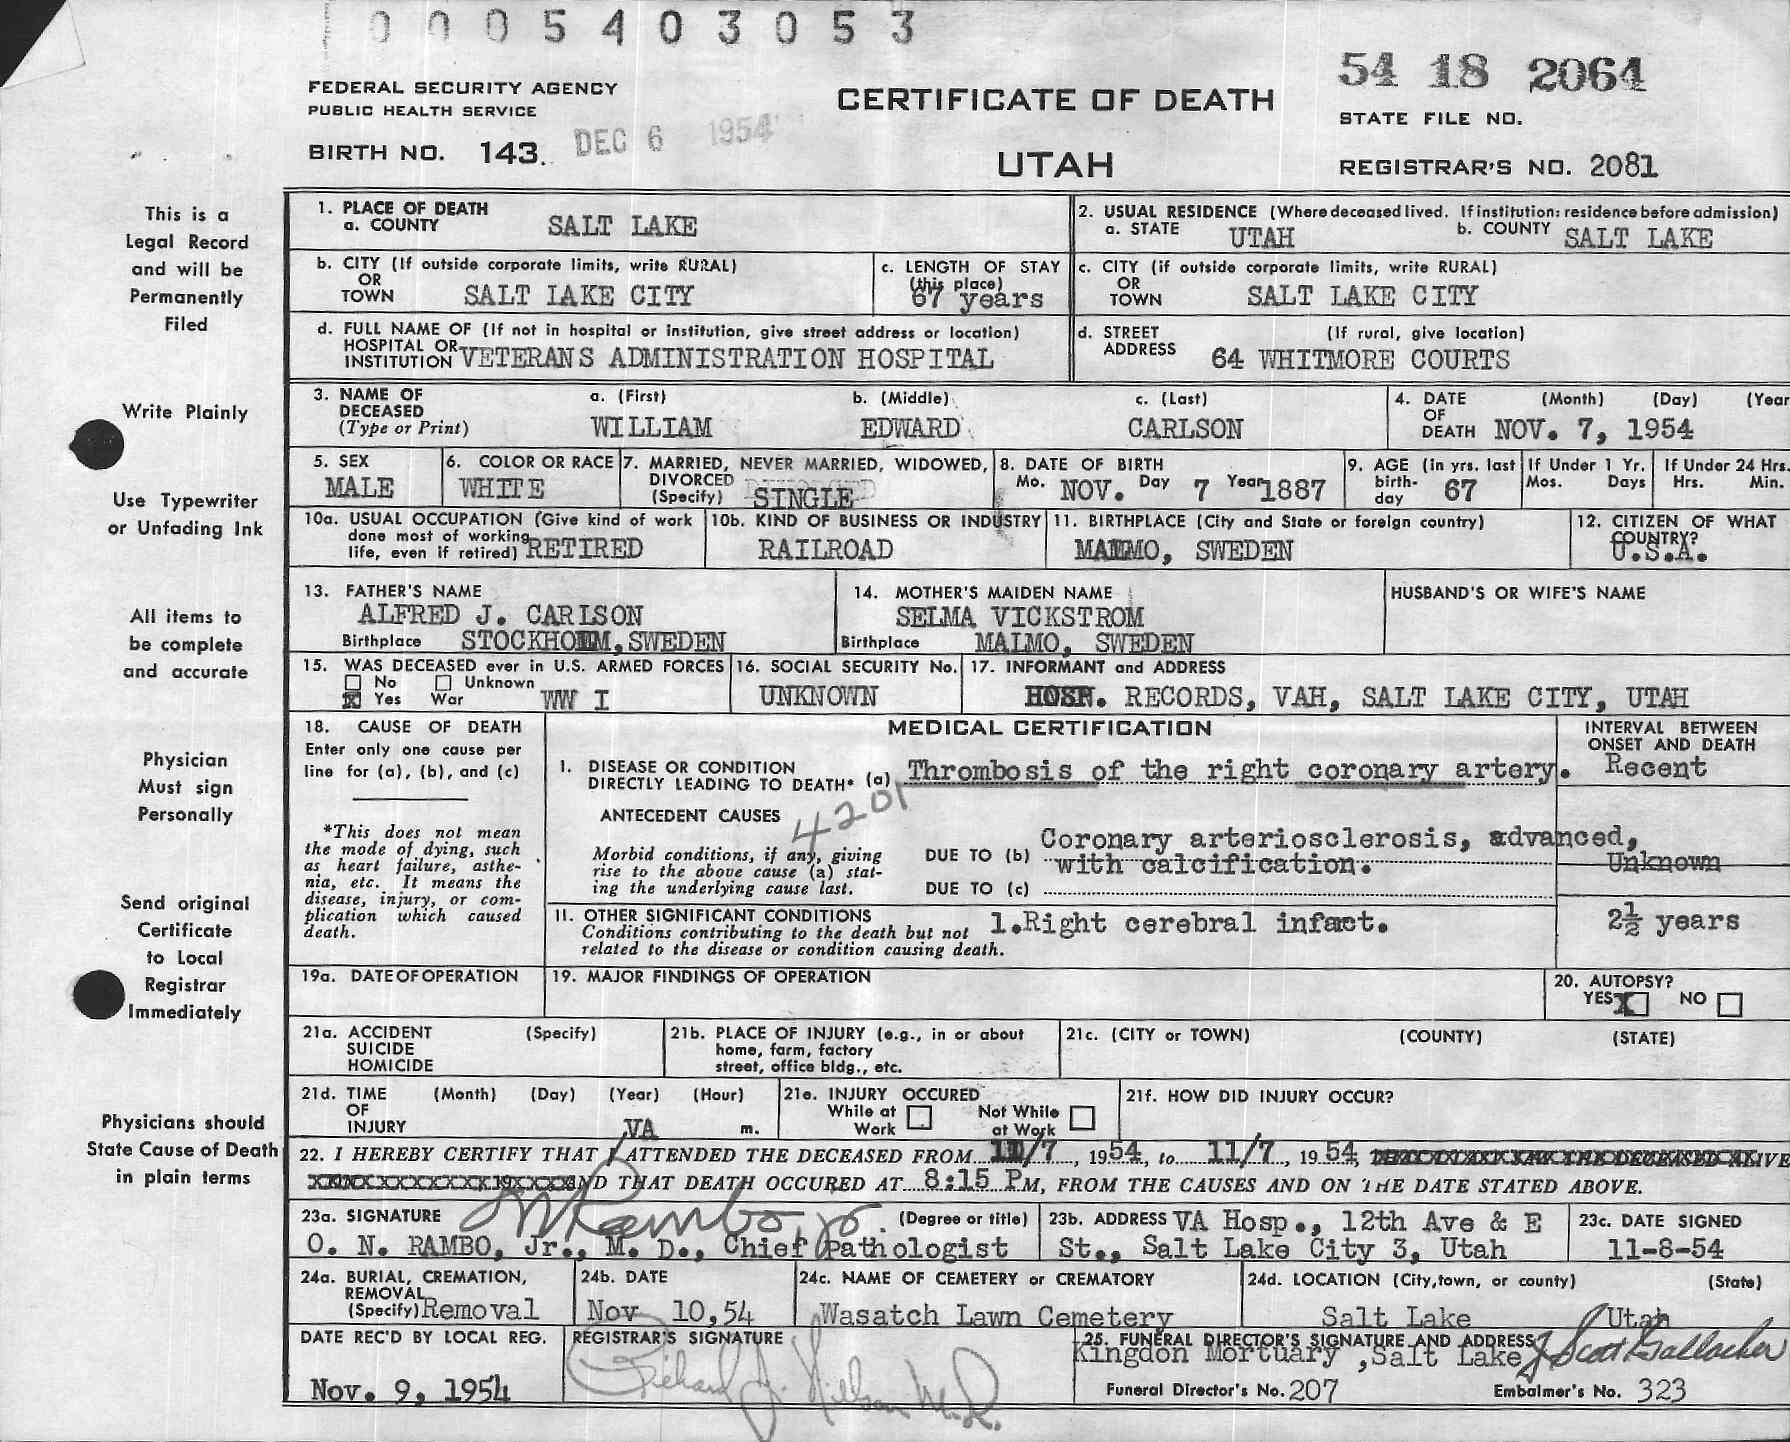 0005403053
54 18 2064
FEDERAL SECURITY AGENCY
PUBLIC HEALTH SERVICE
CERTIFICATE OF DEATH
STATE FILE NO.
BIRTH NO. 143. DEC 6 1954
UTAH
REGISTRAR'S NO. 2081
This is a
Legal Record
and will be
Permanently
Filed
Write Plainly
Use Typewriter
or Unfading Ink
All items to
be complete
and accurate
Physician
Must sign
Personally
Send original
Certificate
to Local
Registrar
Immediately
Physicians should
State Cause of Death
in plain terms
1. PLACE OF DEATH
a. COUNTY SALT LAKE
2. USUAL RESIDENCE (Where deceased lived. If institution: residence before admission)
a. STATE UTAH b. COUNTY SALT LAKE
b. CITY (If outside corporate limits, write RURAL)
OR
TOWN SALT LAKE CITY
c. LENGTH OF STAY
(this place)
67 years
c. CITY (if outside corporate limits, write RURAL)
OR
TOWN SALT LAKE CITY
d. FULL NAME OF (If not in hospital or institution, give street address or location)
HOSPITAL OR
INSTITUTION VETERANS ADMINISTRATION HOSPITAL
d. STREET (If rural, give location)
ADDRESS 64 WHITMORE COURTS
3. NAME OF a. (First) b. (Middle) c. (Last)
DECEASED
(Type or Print) WILLIAM EDWARD CARLSON
4. DATE (Month) (Day) (Year
OF
DEATH NOV. 7, 1954
5. SEX
MALE
6. COLOR OR RACE
WHITE
7. MARRIED, NEVER MARRIED, WIDOWED,
DIVORCED
(Specify) SINGLE
8. DATE OF BIRTH
Mo. NOV. Day 7 Year 1887
9. AGE (in yrs. last
birth-
day 67
If Under 1 Yr.
Mos. Days
If Under 24 Hrs.
Hrs. Min.
10a. USUAL OCCUPATION (Give kind of work
done most of working
life, even if retired) RETIRED
10b. KIND OF BUSINESS OR INDUSTRY
RAILROAD
11. BIRTHPLACE (City and State or foreign country)
MALMO, SWEDEN
12. CITIZEN OF WHAT
COUNTRY?
U.S.A.
13. FATHER'S NAME
ALFRED J. CARLSON
Birthplace STOCKHOLM, SWEDEN
14. MOTHER'S MAIDEN NAME
SELMA VICKSTROM
Birthplace MALMO, SWEDEN
HUSBAND'S OR WIFE'S NAME
15. WAS DECEASED ever in U.S. ARMED FORCES
No Unknown
X Yes War WW I
16. SOCIAL SECURITY No.
UNKNOWN
17. INFORMANT and ADDRESS
HOSP. RECORDS, VAH, SALT LAKE CITY, UTAH
18. CAUSE OF DEATH
Enter only one cause per
line for (a), (b), and (c)
*This does not mean
the mode of dying, such
as heart failure, asthe-
nia, etc. It means the
disease, injury, or com-
plication which caused
death.
MEDICAL CERTIFICATION
INTERVAL BETWEEN
ONSET AND DEATH
I. DISEASE OR CONDITION
DIRECTLY LEADING TO DEATH* (a) Thrombosis of the right coronary artery. Recent
ANTECEDENT CAUSES 4201
Morbid conditions, if any, giving
rise to the above cause (a) stat-
ing the underlying cause last.
DUE TO (b) Coronary arteriosclerosis, advanced,
with calcification. Unknown
DUE TO (c)
II. OTHER SIGNIFICANT CONDITIONS
Conditions contributing to the death but not
related to the disease or condition causing death.
1.Right cerebral infact. 2½ years
19a. DATE OF OPERATION
19. MAJOR FINDINGS OF OPERATION
20. AUTOPSY?
YES X NO
21a. ACCIDENT (Specify)
SUICIDE
HOMICIDE
21b. PLACE OF INJURY (e.g., in or about
home, farm, factory
street, office bldg., etc.
21c. (CITY or TOWN) (COUNTY) (STATE)
21d. TIME (Month) (Day) (Year) (Hour)
OF
INJURY m.
21e. INJURY OCCURED
While at Work Not While at Work
21f. HOW DID INJURY OCCUR?
VA
22. I HEREBY CERTIFY THAT I ATTENDED THE DECEASED FROM 11/7, 1954, to 11/7, 1954, THE DECEASED ALIVE
AND THAT DEATH OCCURED AT 8:15 PM, FROM THE CAUSES AND ON THE DATE STATED ABOVE.
23a. SIGNATURE Rambo, jr. (Degree or title)
O. N. RAMBO, Jr., M. D., Chief Pathologist
23b. ADDRESS VA Hosp., 12th Ave & E
St., Salt Lake City 3, Utah
23c. DATE SIGNED
11-8-54
24a. BURIAL, CREMATION,
REMOVAL
(Specify) Removal
24b. DATE
Nov 10,54
24c. NAME OF CEMETERY or CREMATORY
Wasatch Lawn Cemetery
24d. LOCATION (City, town, or county) (State)
Salt Lake Utah
DATE REC'D BY LOCAL REG.
Nov. 9, 1954
REGISTRAR'S SIGNATURE
25. FUNERAL DIRECTOR'S SIGNATURE AND ADDRESS
Kingdon Mortuary ,Salt Lake J Scott Gallacher
Funeral Director's No. 207 Embalmer's No. 323